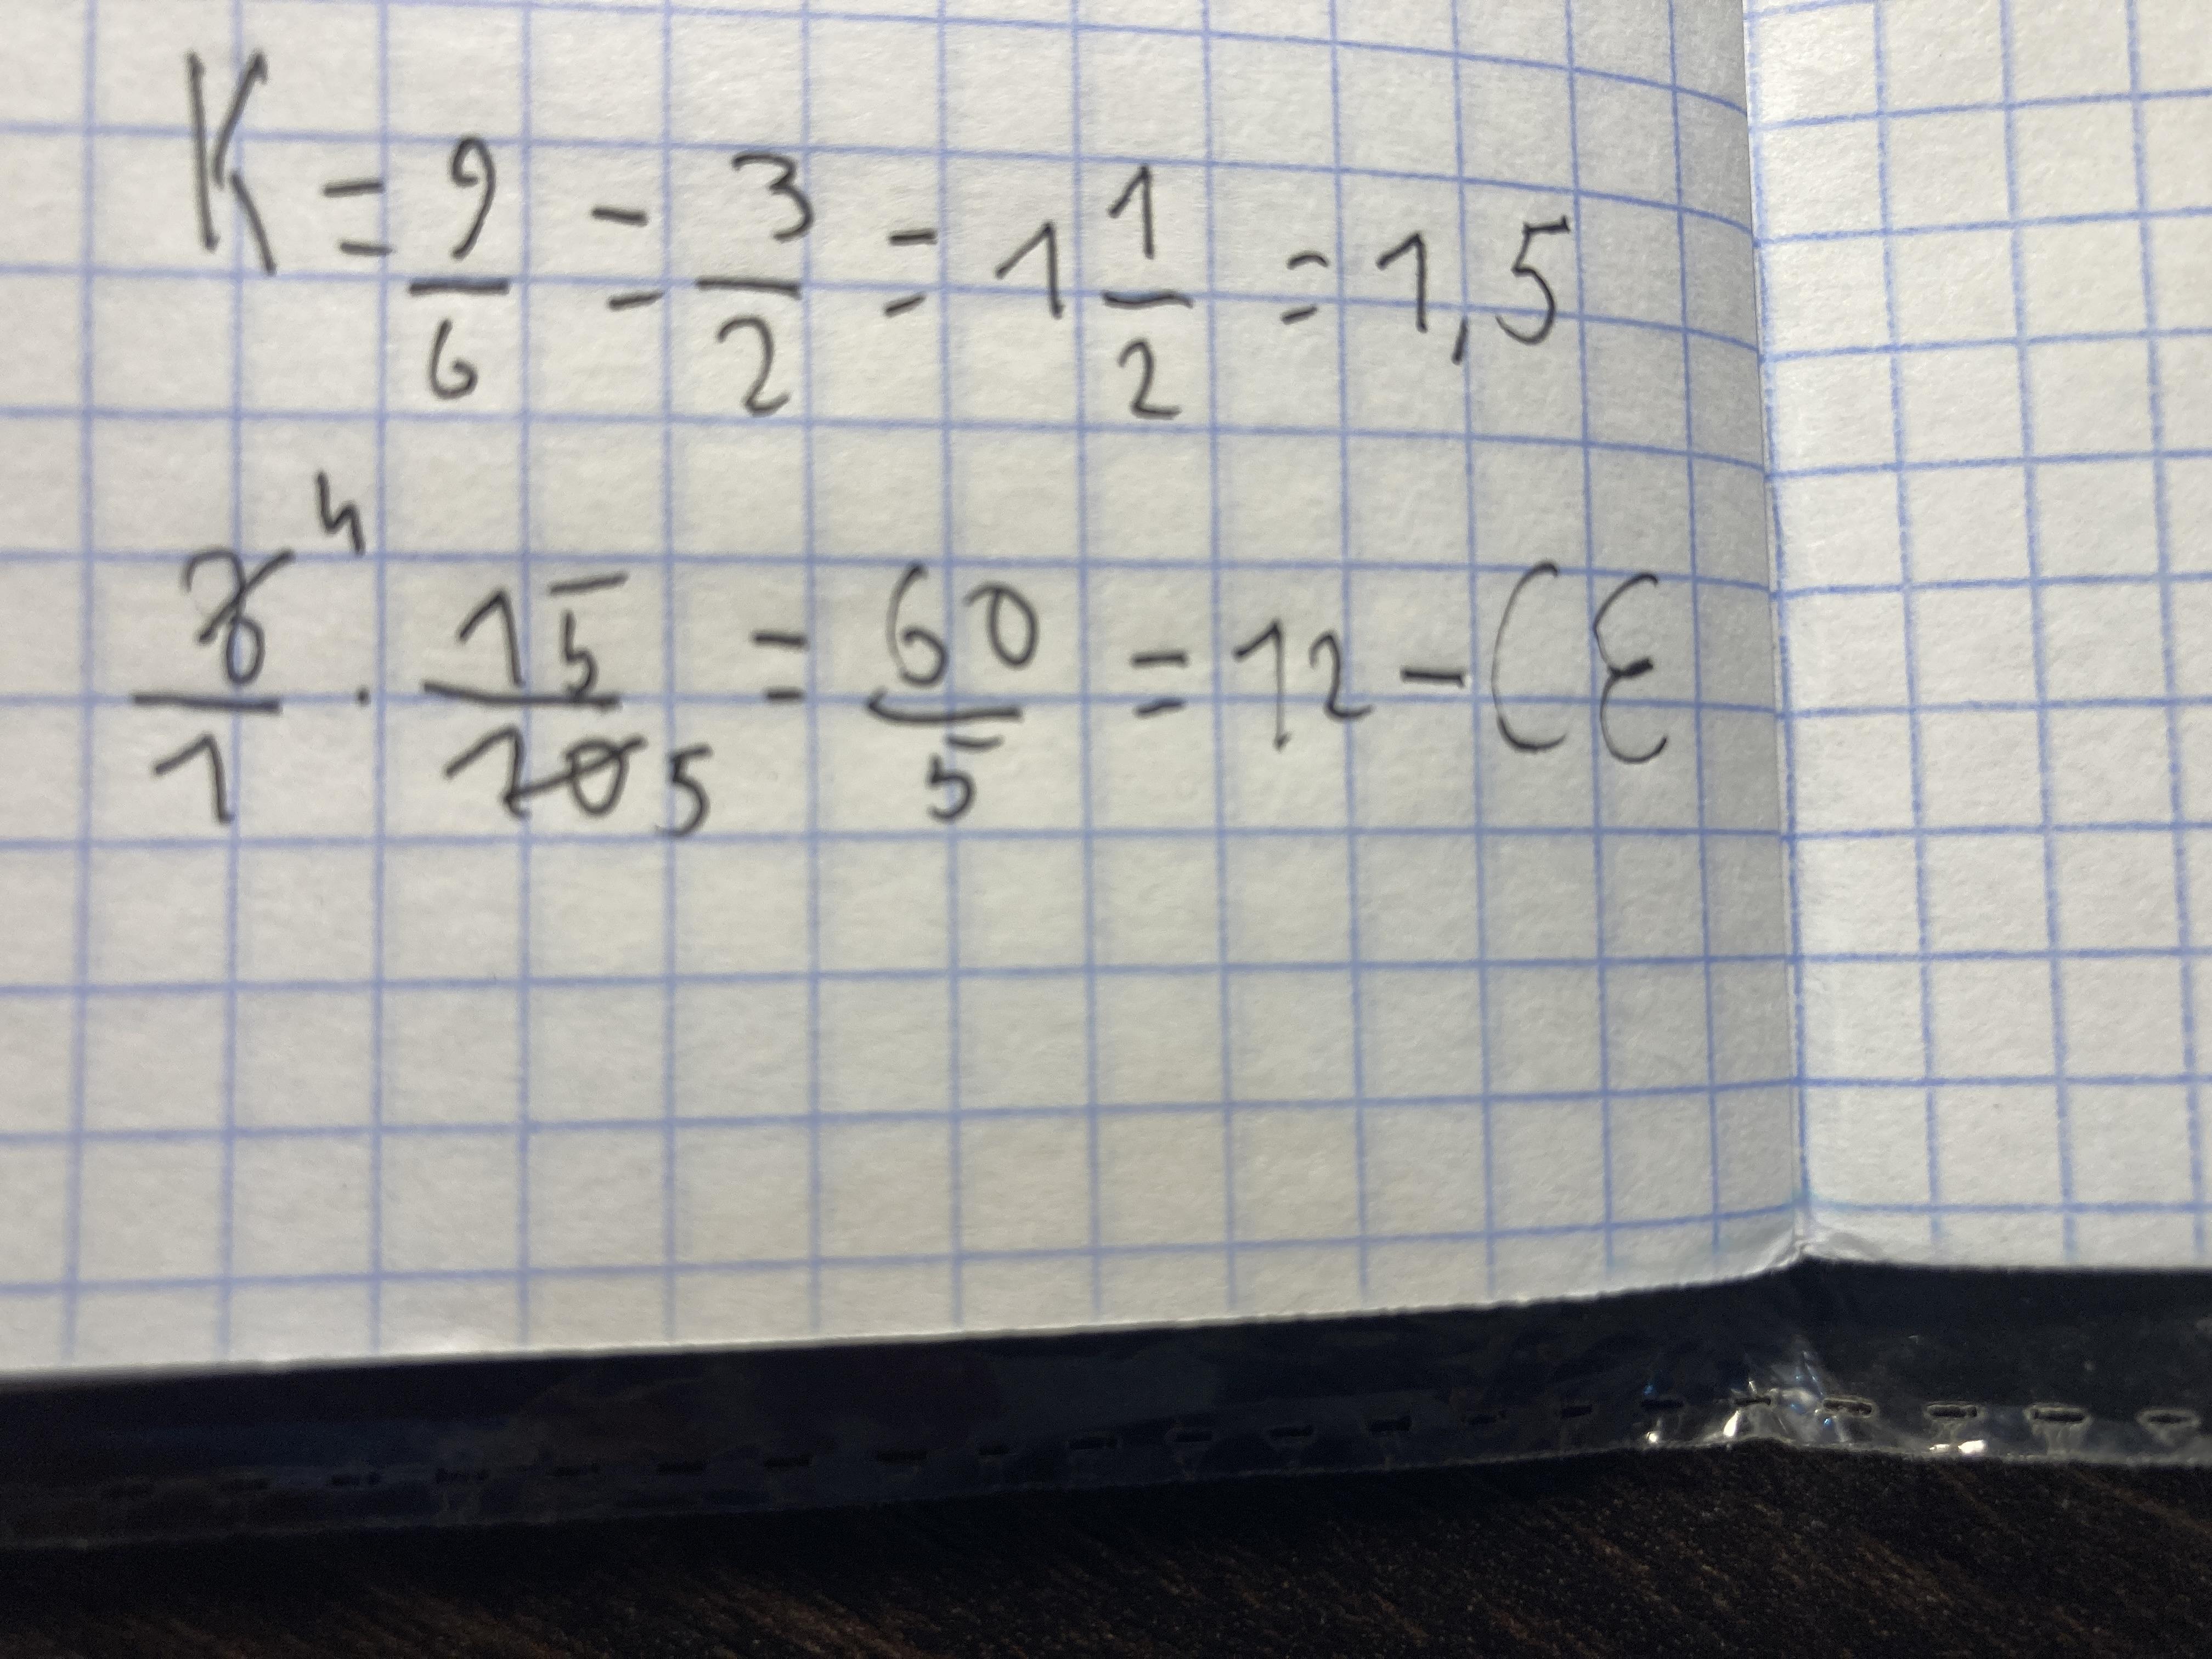 K = 9/6 = 3/2 = 1 1/2 = 1,5
8/1 4 · 15/10 5 = 60/5 = 12 - CE